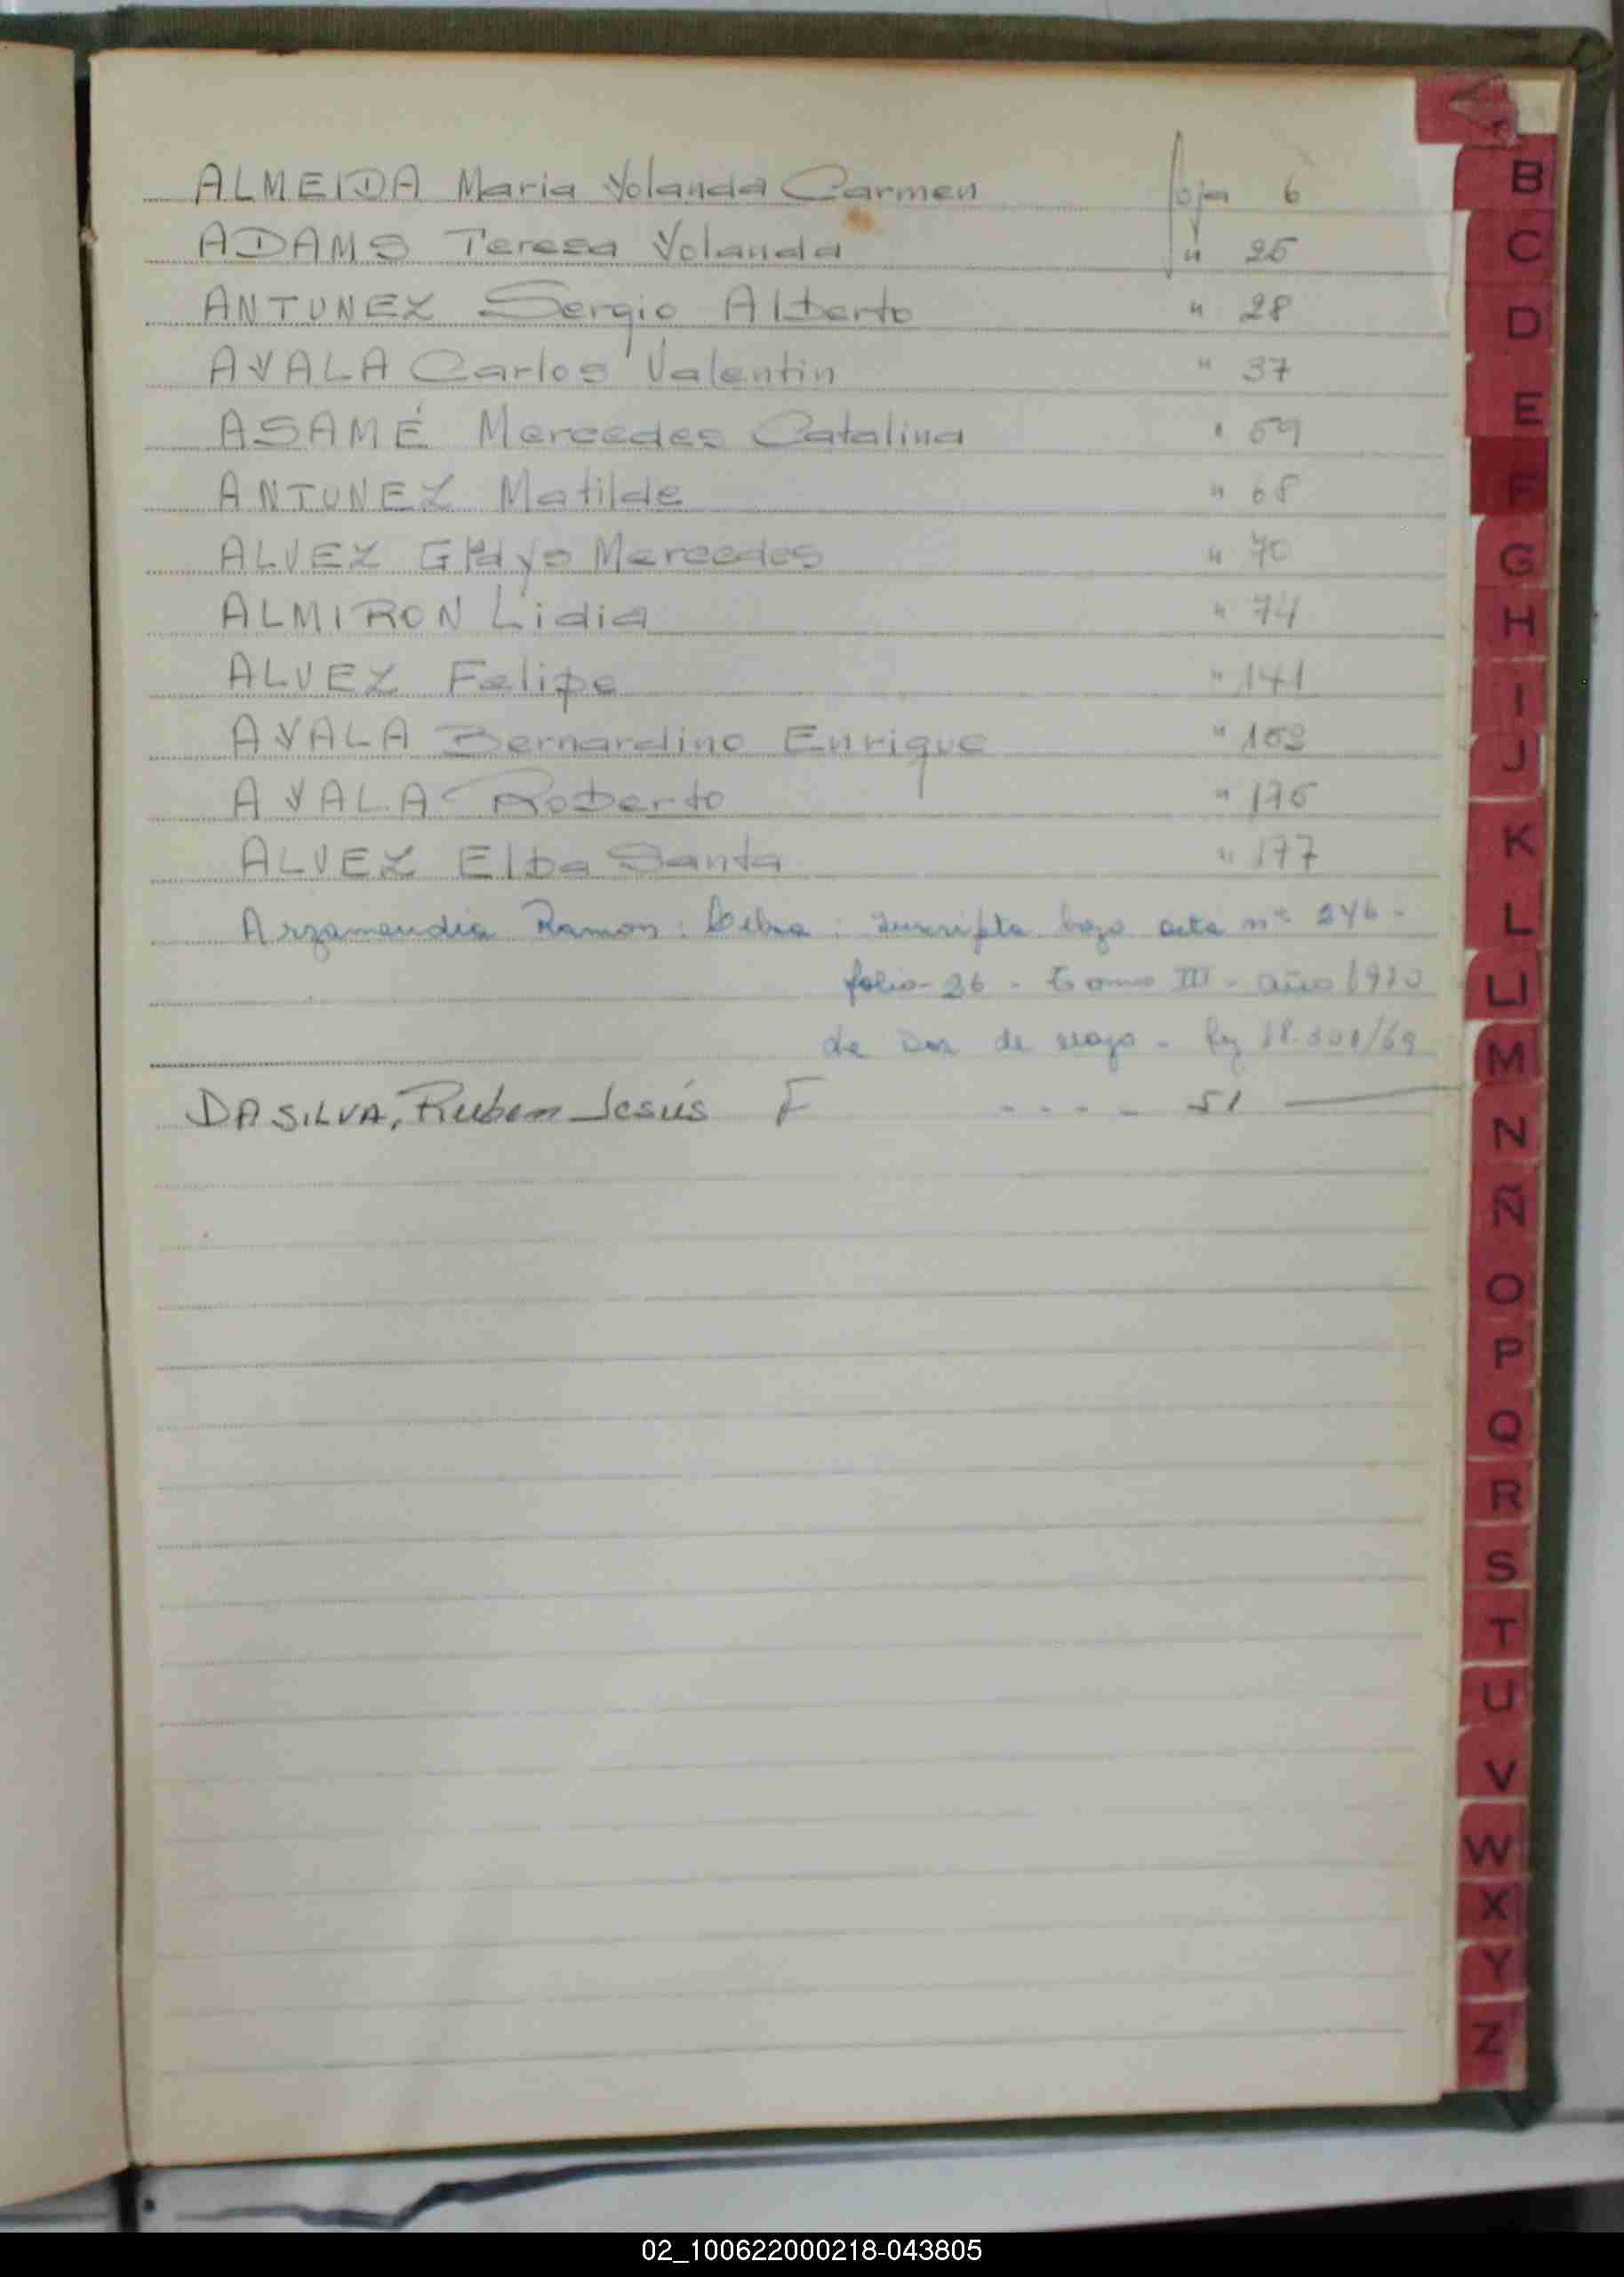 ALMEIDA Maria Yolanda Carmen foja 6
ADAMS Teresa Yolanda " 25
ANTUNEZ Sergio Alberto " 28
AYALA Carlos Valentin " 37
ASAMÉ Mercedes Catalina " 59
ANTUNEZ Matilde " 68
ALVEZ Gladys Mercedes " 70
ALMIRON Lidia " 74
ALVEZ Felipe " 141
AYALA Bernardino Enrique " 152
AYALA Roberto " 175
ALVEZ Elba Santa " 177
Arzamendia Ramon: Inscripta bajo acta nº 246-
folio-36 - Tomo III - año 1970
de Dos de Mayo - Ley
DA SILVA, Ruben Jesús F - - - - 51
B
C
D
E
F
G
H
I
J
K
L
Ll
M
N
Ñ
O
P
Q
R
S
T
U
V
W
X
Y
Z
02_100622000218-043805